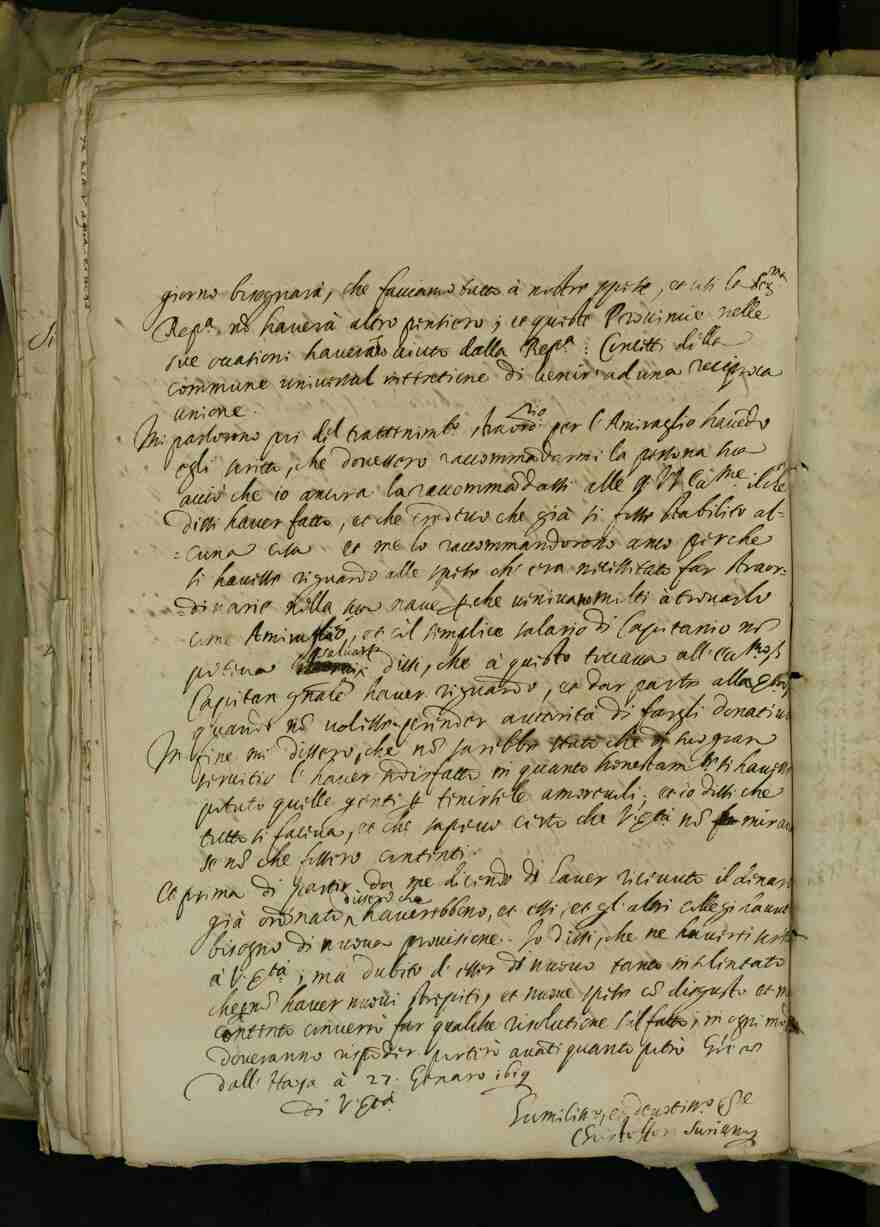 giorno bisognarà, che facciamo tutto à nostre spese, et così la Ser.ma
Rep.a nõ haverà altro pensiero; et queste Provincie nelle
sue occasioni haveranno aiuto dalla Rep.a: Concetti della
commune universal intentione di venir ad una reciproca
unione.
Mi parlorono poi del trattenim.to strao.rio per l'Amiraglio havendo
egli scritto, che dovessero raccommandarmi la persona sua
acciò che io ancora la raccommãdassi alle VV. Ecc.me il che
dissi haver fatto, et che credevo che già si fosse stabilito al-
=cuna cosa et me lo raccommandorono anco perche
si havesse riguardo alle spese ch'era necessitato far straor=
=dinarie nella sua nave perche venivano molti à trovarlo
come Amiraglio, et col semplice salario di Capitanio nõ
poteva dissi, che à questo toccava all' Ecc.mo S.r
Capitan g̃nale haver riguardo, et dar parte alla
quando nõ volesse prender auttorità di fargli donativo
In fine mi dissero, che nõ sarebbe stato che di suo gran
servitio l'haver sodisfatto in quanto honestam.te si havesse
potuto quelle genti per tenirsele amorevoli; et io dissi che
tutto si faceva, et che sapevo certo che V. S.tà nõ
se nõ che fossero contenti.
Et prima di partir da me dicendo di haver ricevuto il dinaro
già ordinato dissero che haverebbono, et essi, et gl'altri collegi havuto
bisogno di nuova provisione. Io dissi, che ne haverei scritto
à V. S.tà; ma dubito d'esser di nuovo tanto molestato
che per nõ haver nuovi strepiti, et nuove spese cõ disgusto et
converrò far qualche risolutione sul fatto; in ogni modo
doveranno risponder partirò avãti quanto potrò Gratie
dall' Haya à 22. Genaro 1619
di V. S.tà
Humiliss.o, et devotiss.o Se.
Christofforo Suriano